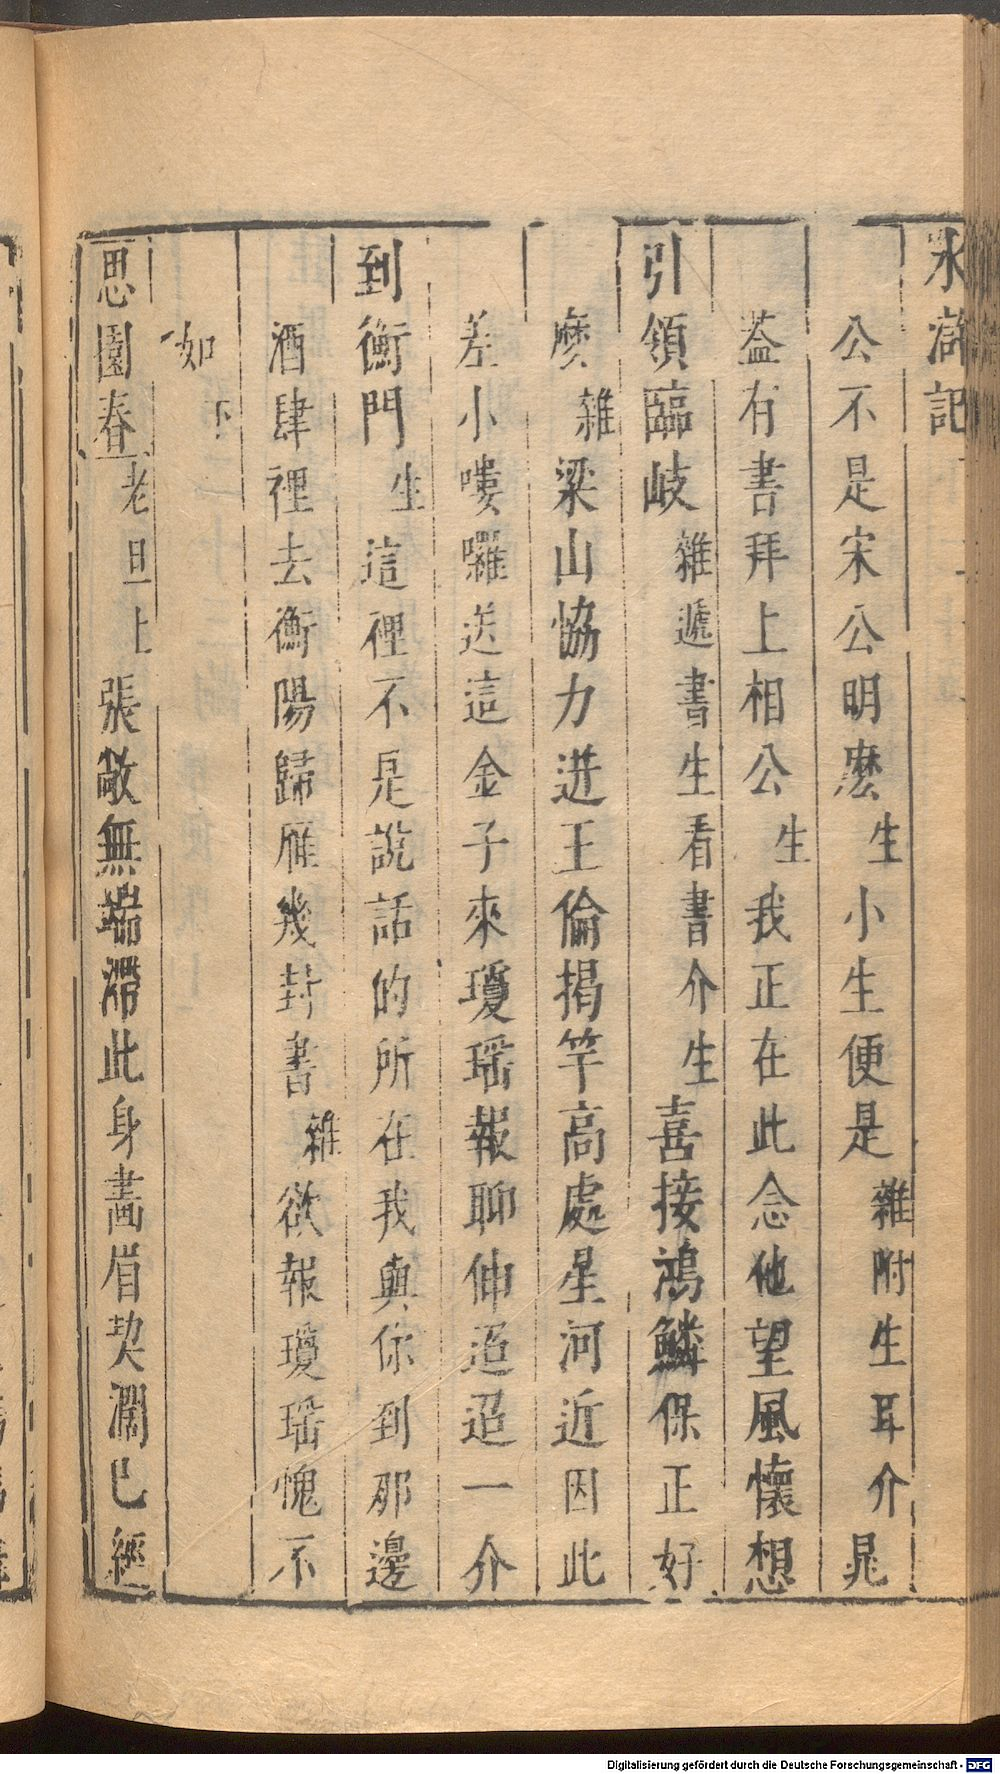 水滸記
公不是宋公明麽生小生便是雜附生耳介晁
葢有書拜上相公生我正在此念他望風懷想
引領臨岐雜遞書生看書介生喜接鴻鱗保正好
麽雜梁山恊力進王倫揭竿高處星河近因此
差小嘍囉送這金子來瓊瑶報聊伸迢迢一介
到衡門生這裡不是說話的所在我與你到那邊
酒肆裡去衡陽歸雁幾封書雜欲報瓊瑶愧不
如下
思園春老旦上張敞無端滯此身畵眉契濶已經
Digitalisierung gefördert durch die Deutsche Forschungsgemeinschaft - DFG